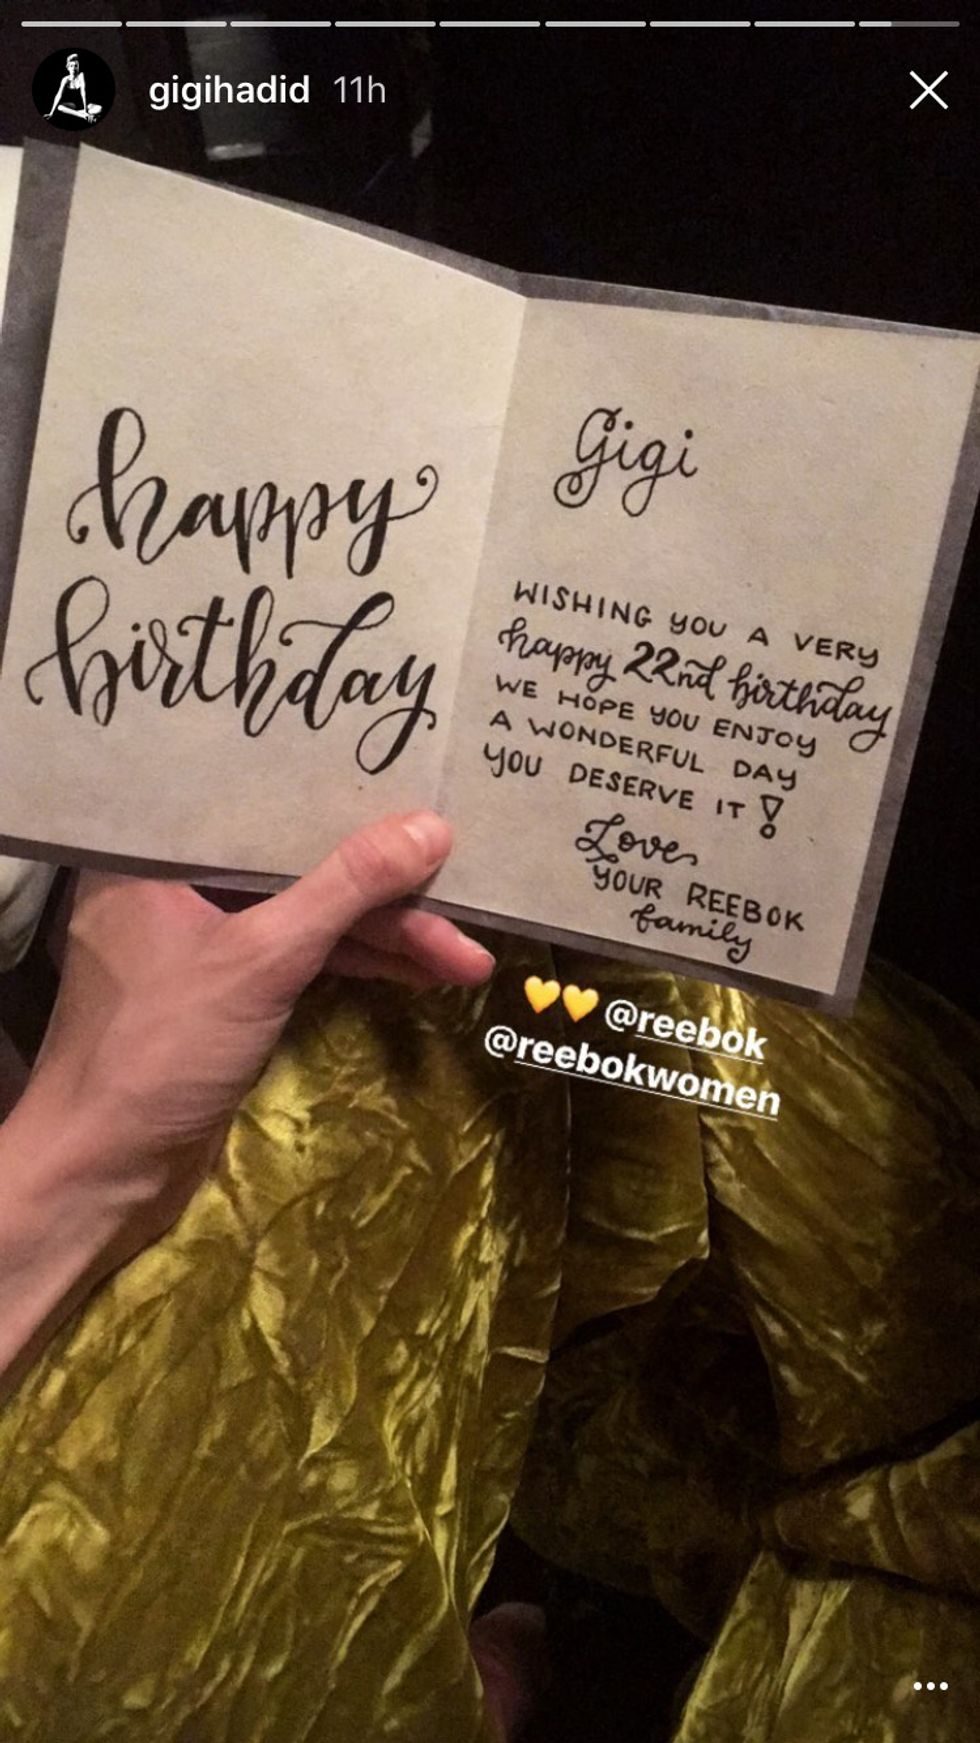 gigihadid 11h
happy
birthday
Gigi
WISHING YOU A VERY
happy 22nd birthday
WE HOPE YOU ENJOY
A WONDERFUL DAY
YOU DESERVE IT!
Love,
YOUR REEBOK
family
💛💛 @reebok
@reebokwomen